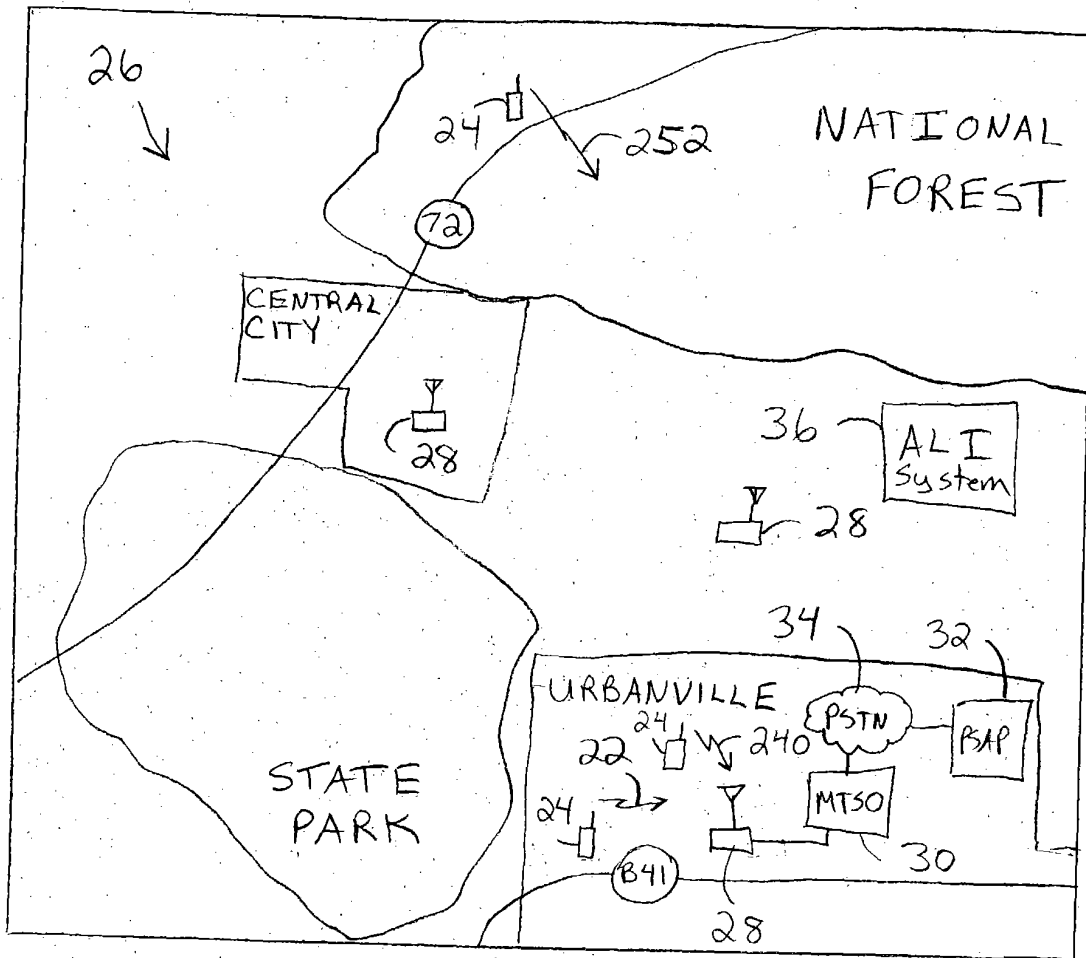 26
24
252
NATIONAL
FOREST
72
CENTRAL
CITY
28
36
ALI
System
28
34
32
URBANVILLE
PSTN
PSAP
24
240
22
MTSO
24
30
B41
28
STATE
PARK